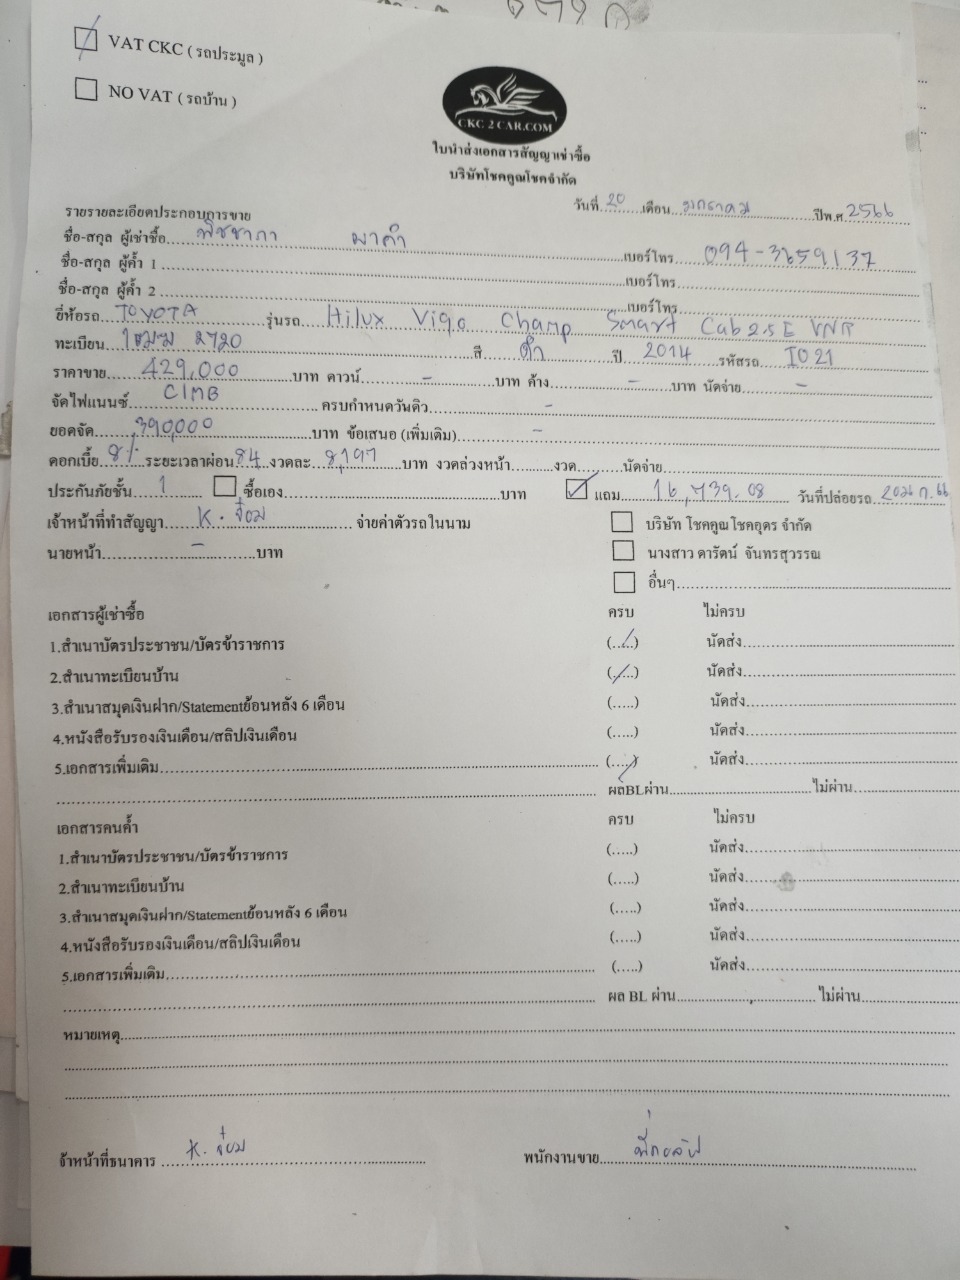 VAT CKC ( รถประมูล )
NO VAT ( รถบ้าน )
CKC 2 CAR.COM
ใบนำส่งเอกสารสัญญาเช่าซื้อ
บริษัทโชคคูณโชคจำกัด
วันที่ 20 เดือน มกราคม ปีพ.ศ. 2566
รายรายละเอียดประกอบการขาย
ชื่อ-สกุล ผู้เช่าซื้อ พิชชาภา ผาคำ เบอร์โทร 094-3659137
ชื่อ-สกุล ผู้ค้ำ 1 เบอร์โทร
ชื่อ-สกุล ผู้ค้ำ 2 เบอร์โทร
ยี่ห้อรถ TOYOTA รุ่นรถ Hilux Vigo Champ Smart Cab 2.5 E VNT
ทะเบียน 2720 สี ดำ ปี 2014 รหัสรถ I021
ราคาขาย 429,000 บาท ดาวน์ - บาท ค้าง - บาท นัดจ่าย -
จัดไฟแนนซ์ CIMB ครบกำหนดวันคิว -
ยอดจัด 390,000 บาท ข้อเสนอ (เพิ่มเติม) -
ดอกเบี้ย 8% ระยะเวลาผ่อน 84 งวดละ 8,197 บาท งวดล่วงหน้า งวด นัดจ่าย
ประกันภัยชั้น 1 ซื้อเอง บาท แถม 16,739.08 วันที่ปล่อยรถ 20 ม.ค. 66
เจ้าหน้าที่ทำสัญญา K. จ๋อม จ่ายค่าตัวรถในนาม บริษัท โชคคูณโชคอุดร จำกัด
นายหน้า - บาท นางสาว ดารัตน์ จันทรสุวรรณ
อื่นๆ
เอกสารผู้เช่าซื้อ ครบ ไม่ครบ
1.สำเนาบัตรประชาชน/บัตรข้าราชการ (..../..) นัดส่ง
2.สำเนาทะเบียนบ้าน (../...) นัดส่ง
3.สำเนาสมุดเงินฝาก/Statementย้อนหลัง 6 เดือน (.....) นัดส่ง
4.หนังสือรับรองเงินเดือน/สลิปเงินเดือน (.....) นัดส่ง
5.เอกสารเพิ่มเติม (.....) นัดส่ง
ผลBLผ่าน ไม่ผ่าน
เอกสารคนค้ำ ครบ ไม่ครบ
1.สำเนาบัตรประชาชน/บัตรข้าราชการ (.....) นัดส่ง
2.สำเนาทะเบียนบ้าน (.....) นัดส่ง
3.สำเนาสมุดเงินฝาก/Statementย้อนหลัง 6 เดือน (.....) นัดส่ง
4.หนังสือรับรองเงินเดือน/สลิปเงินเดือน (.....) นัดส่ง
5.เอกสารเพิ่มเติม (.....) นัดส่ง
ผล BL ผ่าน ไม่ผ่าน
หมายเหตุ
จ้าหน้าที่ธนาคาร K. จ๋อม พนักงานขาย